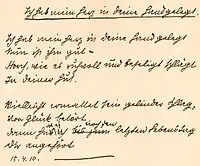 Ich hab mein Herz in deine Hand gelegt.
Ich hab mein Herz in deine Hand gelegt
Nun ist ihm gut –
Horch, wie es ruhvoll und beseligt schlägt
In deiner Hut.
Vielleicht erwartet sein gelinder Schlag,
Von Glück betört,
dann
letzten Lebenstag
Dir angehört
15.4.10.